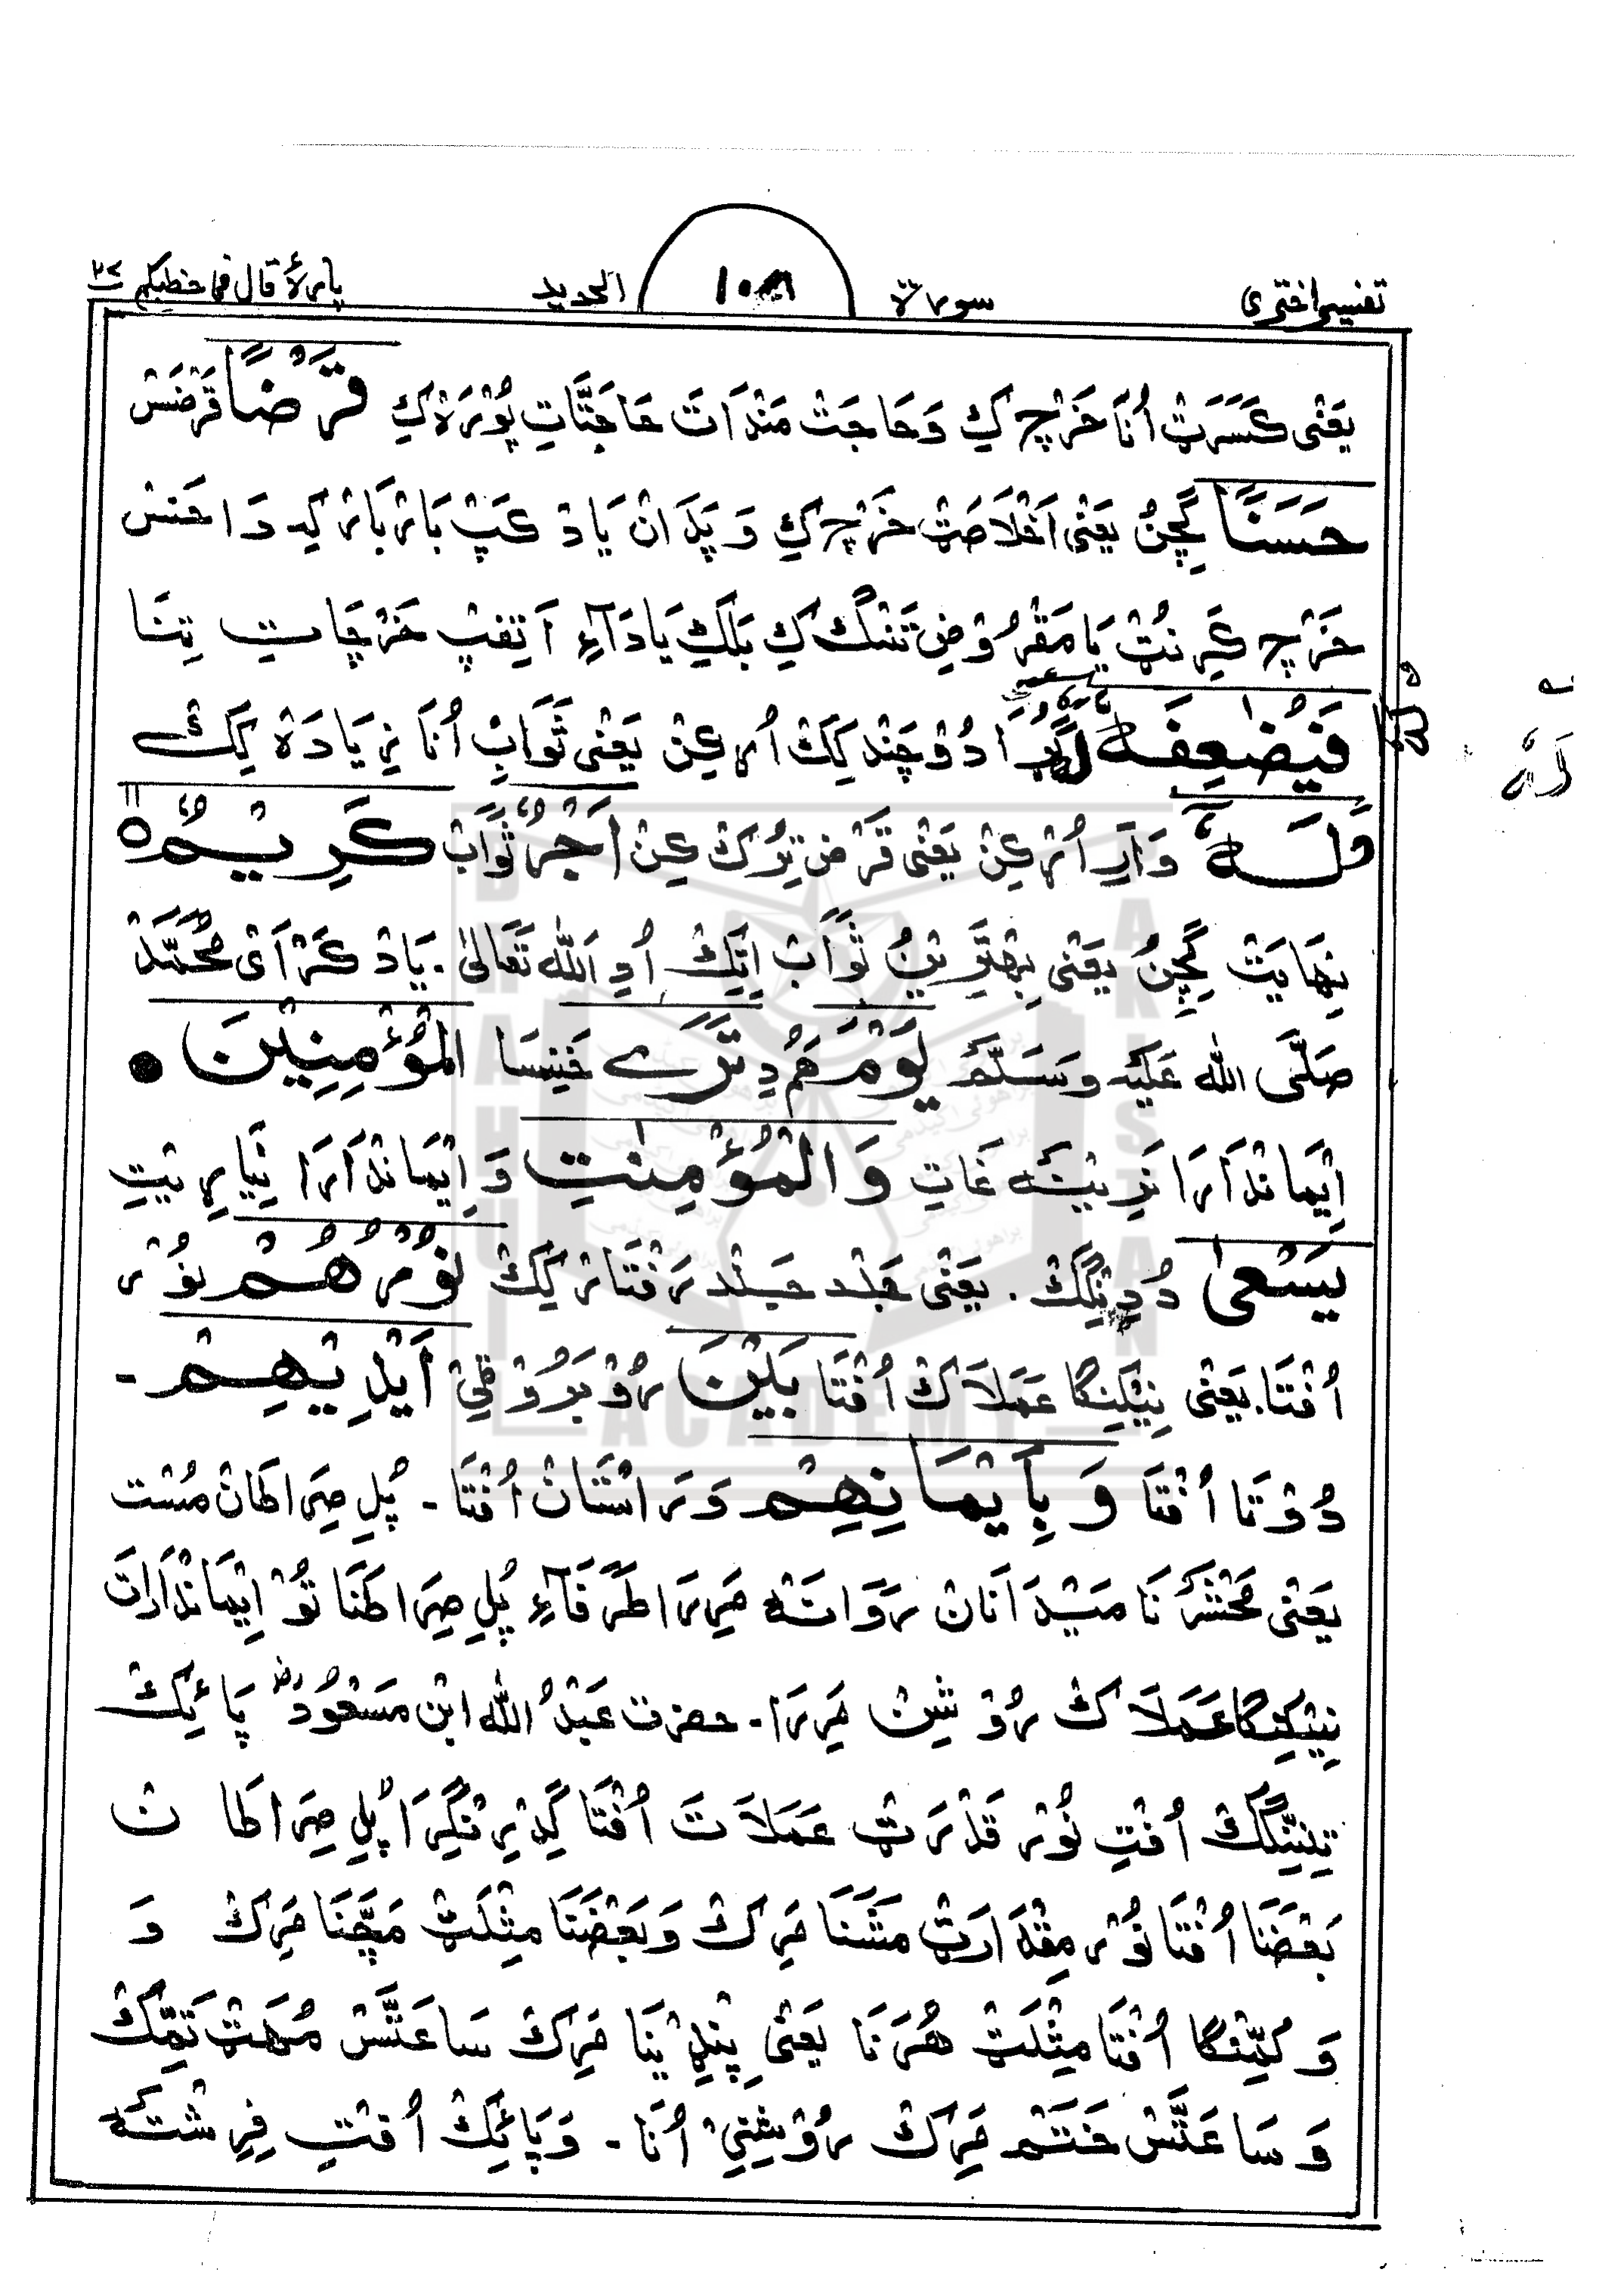 تفسیر اختری سورۃ الحدید پارۂ قال فما خطبکم ۲۷
یَعْنِی کَسَرَٹْ اُنَا خَرْچ کِ وَحَاجَتْ مَنْدَاتَ حَاجَتَاتِ پُوْرَہْ کِ قَرْضًا قَرْضَسْ
حَسَنًا کَچِنُ یَعْنِی اَخْلَاصَٹْ خَرْچ کِ وَ پَدَ انْ یَادْ کَپْ بَارْ بَارْ کِہ دَا خَسْ
خَرْچ کَرِنُٹْ یَا مَقْرُوْضِ تَنْگ کِ بَلْکِ یَادَآءِ اَتِفَپْ خَرْچَاتِ تِنَا
فَیُضٰعِفَهٗ اَدُوْچَنْد کِکْ اُرکِنْ یَعْنِی ثَوَابْ اُنَا زِیَادَہْ کِکْ
لَهٗ وَاَرِ اُرْکِنْ یَعْنِی قَرْض تِرُکْ کِنْ اَجْرٌ ثَوَابْ کَرِیْمٌ ۱۱
نِهَایَتْ کَچِنُ یَعْنِی بِهْتَرِیْنُ ثَوَابْ اِتِکْ اُدِ اَللّٰه تَعَالٰی۔ یَادْ کَرْ اَیْ مُحَمَّدْ
صَلَّی اللّٰه عَلَیْه وَسَلَّمَ یَوْمَ هَمُ دِ تَرَے خَنِسَا الْمُؤْمِنِیْنَ
اِیْمَانْدَارَا نَرِیْنَه غَاتِ وَالْمُؤْمِنٰتِ وَ اِیْمَانْدَارَا نِیَارِیْتِ
یَسْعٰی دُدِنِگِکْ۔ یَعْنِی جَلْد جَلْد رَفْتَار کِکْ نُوْرُهُمْ نُوْر
اُفْتَا۔ یَعْنِی نِیْکِنْگا عَمَلَاکْ اُفْتَا بَیْنَ رُوْبَرُوْ اَیْدِیْهِمْ ۔
دُوْتَا اُفْتَا وَ بِاَیْمَانِهِمْ وَ رَاسْتَانْ اُفْتَا ۔ پُلِ صِرَاطَانْ مُسْت
یَعْنِی مَحْشَرْ نَا مَیْدَانَانْ رَوَانَه مَرِرَ طَرْفَآءِ پُلِ صِرَاطَنَا تُوْ اِیْمَانْدَارَاتَ
نِیْکِنْگا عَمَلَاکْ رُوْشِنْ مَرِرَا۔ حضرت عَبْدُ اللّٰه ابْن مَسْعُوْد پَائِکْ
تِنِنْگِکْ اُفْتِ نُوْر قَدْرَٹْ عَمَلَاتَ اُفْتَا گِدِرِنْگِرَ اپُلِ صِرَاطَا نْ
بَعْضَنَا اُفْتَا نُوْر مِقْدَارَٹْ مَشَنَا مَرِکْ وَبَعْضَنَا مِثْلَٹْ مَچَّنَا مَرِکْ وَ
وَ اُفْتَا مِثْلَٹْ هُرَ نَا یَعْنِی پِنْدِیْنَا مَرِکْ سَاعَتَسْ مُهَٹْ تَمِّکْ
وَ سَاعَتَسْ خَتْم مَرِکْ رُوْشْنِیْ اُنَا ۔ وَپَائِکْ اُفْتِ فِرِشْتَه